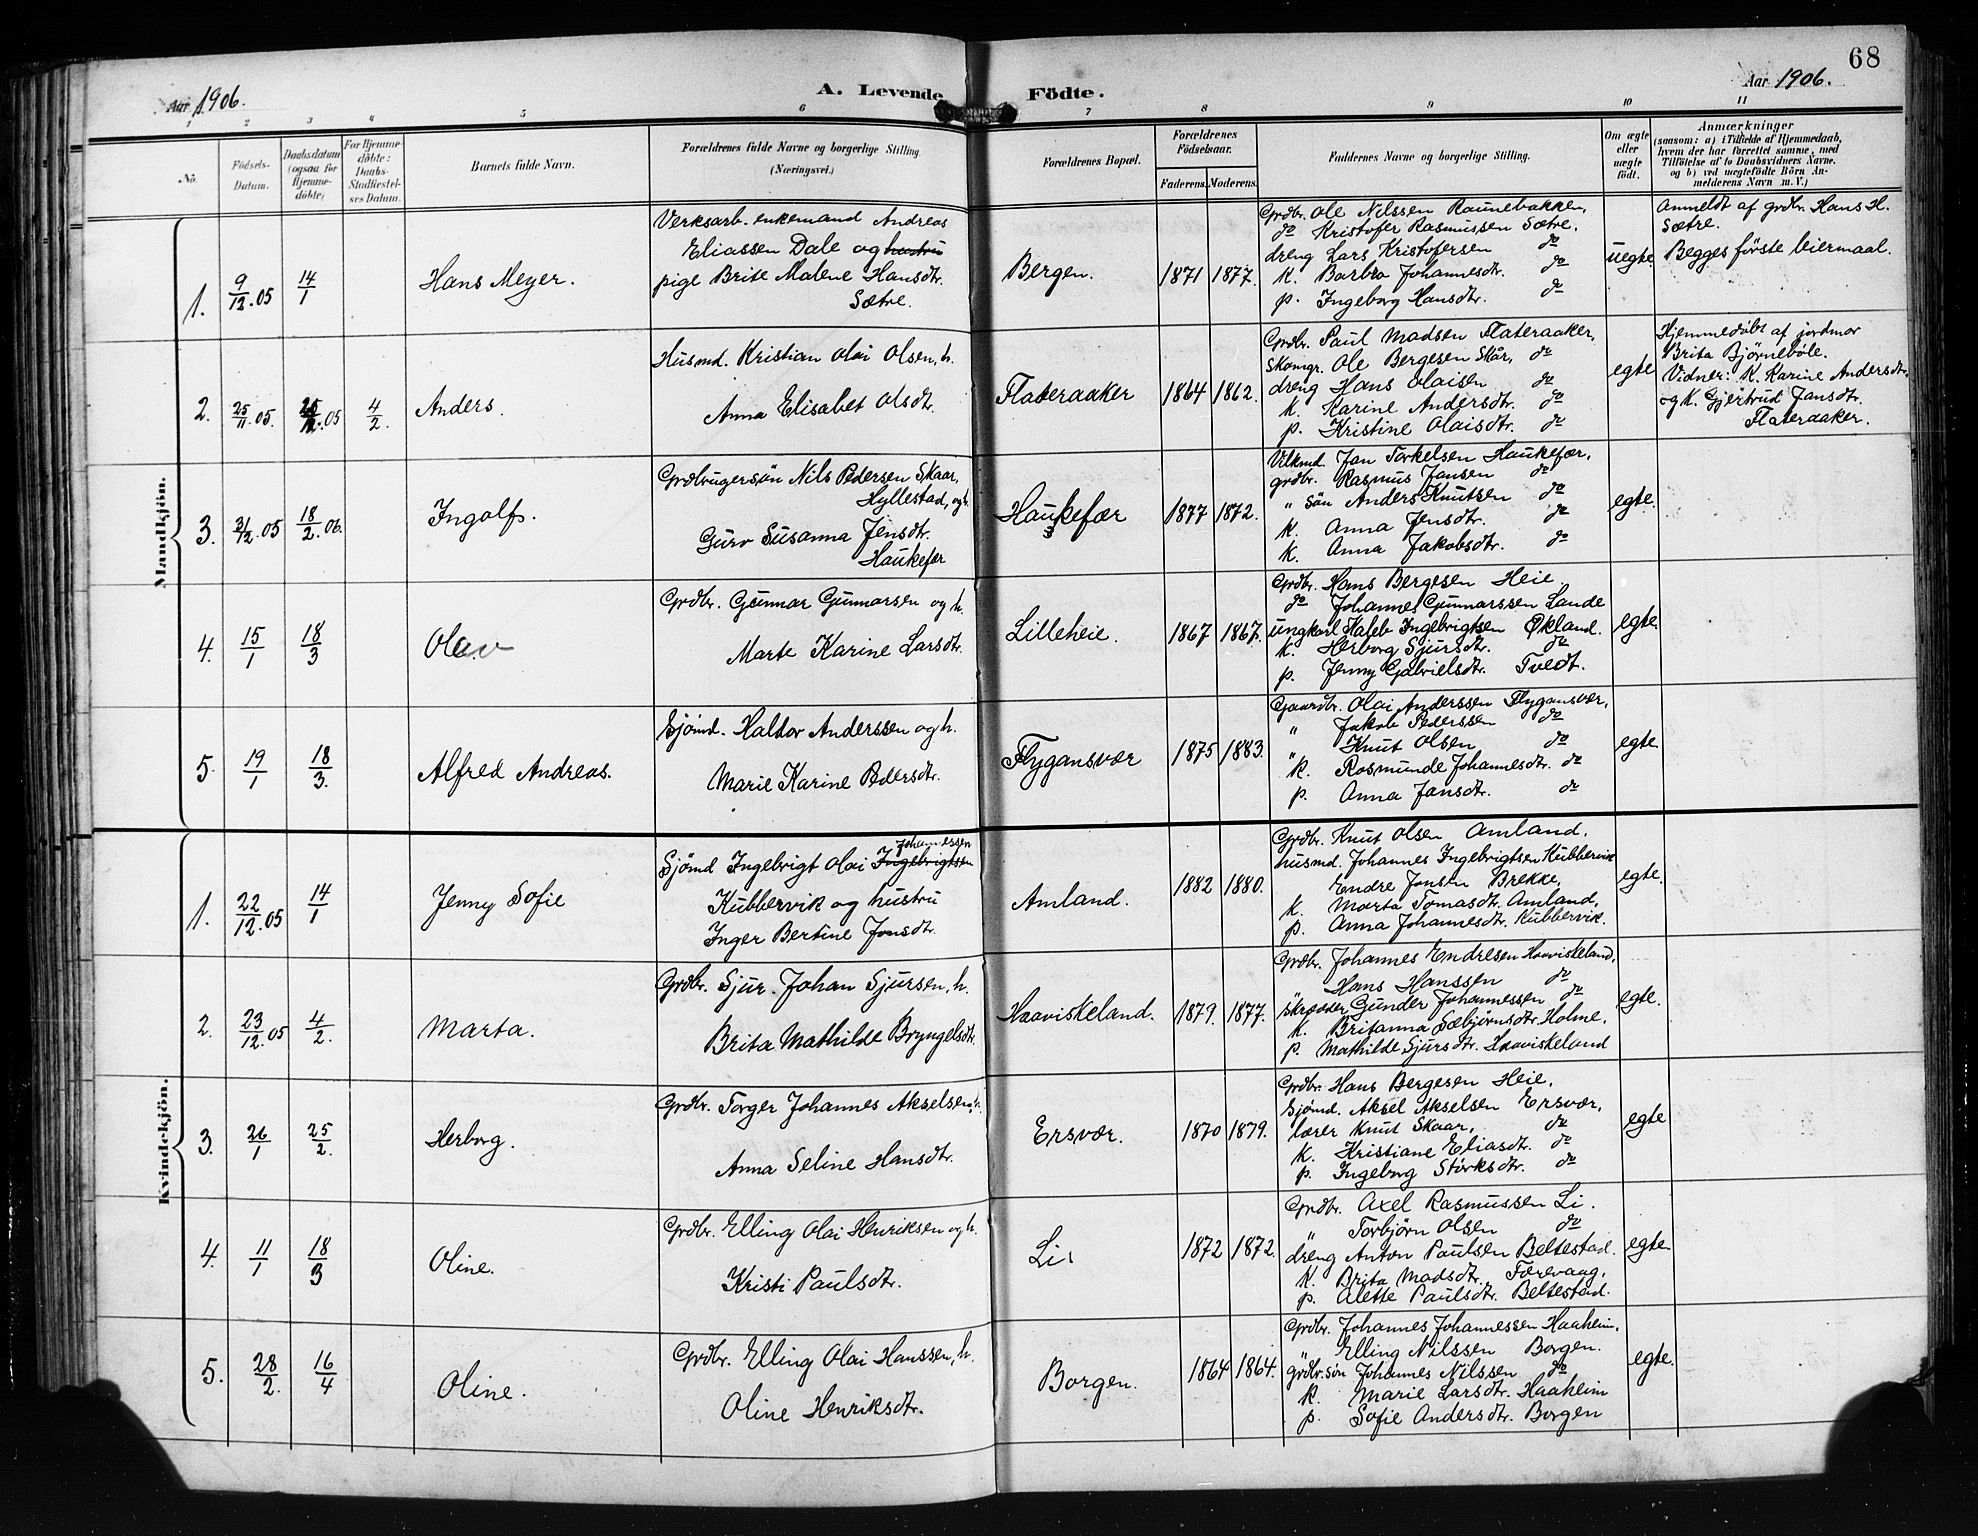 68
Aar 1906.
A. Levende Födte.
Aar 1906.
1 2 3 4 5 6 7 8 9 10 11
No.
Födsels-Datum.
Daabsdatum (ogsaa for Hjemmedöbte)
For Hjemmedöbte: Daabs-Stadfæstelses Datum.
Barnets fulde Navn.
Forældrenes fulde Navne og borgerlige Stilling.
(Næringsvei.)
Forældrenes Bopæl.
Forældrenes Födselsaar.
Faderens. Moderens.
Faddernes Navne og borgerlige Stilling.
Om ægte eller uægte födt.
Anmærkninger
(saasom: a) i Tilfælde af Hjemmedaab,
hvem der har forrettet samme, med
Tilföielse af to Daabsvidners Navne.
og b) ved uægtefödte Börn An-
melderens Navn m. V.)
Mandkjön.
1. 9/12.05 14/1 Hans Meyer.
Verksarb. enkemand Andreas
Eliassen Dale og hustru
pige Brite Malene Hansdtr.
Sætre.
Bergen. 1871 1877.
Grdbr. Ole Nilssen Raunebakken,
do Kristofer Rasmussen Sætre.
dreng Lars Kristofersen do
k. Barbra Johannesdtr. do
p. Ingeborg Hansdtr. do
uegte
Anmeldt af grdbr. Hans H.
Sætre.
Begges første leiermaal.
2. 25/11.05. 25/12.05 4/2. Anders.
Husmd. Kristian Olai Olsen, h.
Anna Elisabet Olsdtr.
Flateraaker 1864 1862.
Grdbr. Paul Madsen Flateraaker,
Skomgr. Ole Bergesen Skår, do
dreng Hans Olaisen do
k. Karine Andersdtr. do
p. Kristine Olaisdtr. do
egte
Hjemmedøbt af jordmor
Brita Bjørnebøle.
Vidner: K. Karine Andersdtr.
og K. Gjertrud Jansdtr.
Flateraaker.
3. 31/12.05 18/2.06. Ingolf.
Grdbrugersøn Nils Pedersen Skaar,
Hyllestad, og h.
Guro Susanna Jensdtr.
Haukefær
Haukefær 1877 1872.
Vilkmd. Jan Torkelsen Haukefær,
grdbr. Rasmus Jansen do
" søn Anders Knutsen do
k. Anna Jensdtr. do
k. Anna Jakobsdtr. do
egte.
4. 15/1 18/3 Olav
Grdbr. Gunnar Gunnarsen og h.
Marte Karine Larsdtr.
Lilleheie. 1867 1867.
Grdbr. Hans Bergesen Heie
do Johannes Gunnarssen Lande
ungkarl Haleb Ingebrigtsen Økland.
k. Herborg Sjursdtr. do
p. Jenny Gabrielsdtr. Tvedt.
egte.
5. 19/1 18/3. Alfred Andreas.
Sjømd. Haldor Anderssen og h.
Marie Karine Pedersdtr.
Flygansvær 1875 1883.
Gaardbr. Olai Anderssen Flygansvær,
" Jakob Pederssen do
" Knut Olsen do
k. Rosmunde Johannesdtr. do
p. Anna Jansdtr. do
egte.
Kvindekjön.
1. 22/12.05 14/1 Jenny Sofie
Johannessen
Sjømd Ingebrigt Olai Ingebrigtsen
Kubbervik og hustru
Inger Bertine Jonsdtr.
Amland. 1882 1880.
Grdbr. Knut Olsen Amland.
husmd. Johannes Ingebrigtsen Kubbervik
Endre Jonsen Brekke,
k. Marta Tomasdt. Amland,
p. Anna Johannesdtr. Kubbervik.
egte.
2. 23/12.05 4/2. Marta.
Grdbr. Sjur Johan Sjursen, h.
Brita Mathilde Bryngelsdtr.
Haaviskeland. 1879. 1877.
Grdbr. Johannes Endresen Haaviskeland,
" Hans Hanssen do
skrædder Gunder Johannessen do
k. Britanna Sæbjørnsdtr. Holme.
p. Mathilde Sjursdtr. Haaviskeland
egte.
3. 26/1 25/2. Herborg.
Grdbr. Torger Johannes Akselsen, h.
Anna Seline Hansdtr.
Ersvær. 1870 1879.
Grdbr. Hans Bergesen Heie,
Sjømd. Aksel Akselsen Ersvær,
lærer Knut Skaar, do
k. Kristiane Eliasdt. do
p. Ingeborg Størksdtr. do
egte
4. 11/1 18/3 Oline.
Grdbr. Elling Olai Henriksen og h.
Kristi Paulsdtr.
Li 1872 1872.
Grdbr. Axel Rasmussen Li.
" Torbjørn Olsen do
dreng Anton Paulsen Beltestad.
k. Brita Madsdtr. Færevaag,
p. Alette Paulsdtr. Beltestad.
egte.
5. 28/2. 16/4 Oline.
Grdbr. Elling Olai Hanssen, h.
Oline Henriksdtr.
Borgen. 1864 1864.
Grdbr. Johannes Johannessen Haaheim,
" Elling Nilssen Borgen.
grdbr.søn Johannes Nilssen do
k. Marie Larsdtr. Haaheim
p. Sofie Andersdtr. Borgen
egte.